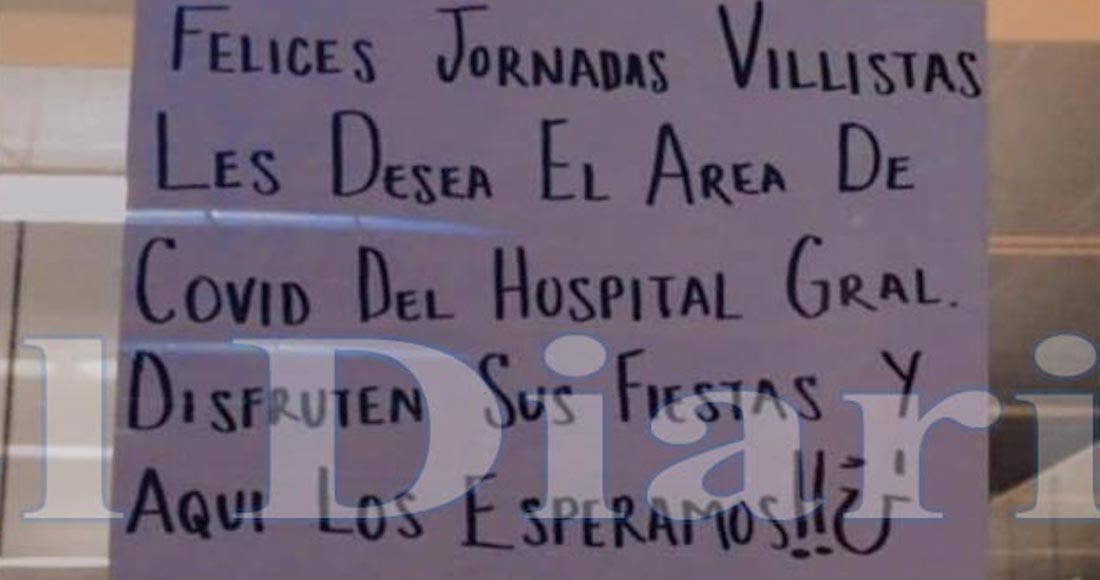 FELICES JORNADAS VILLISTAS
LES DESEA EL AREA DE
COVID DEL HOSPITAL GRAL.
DISFRUTEN SUS FIESTAS Y
AQUI LOS ESPERAMOS!!
l Diari